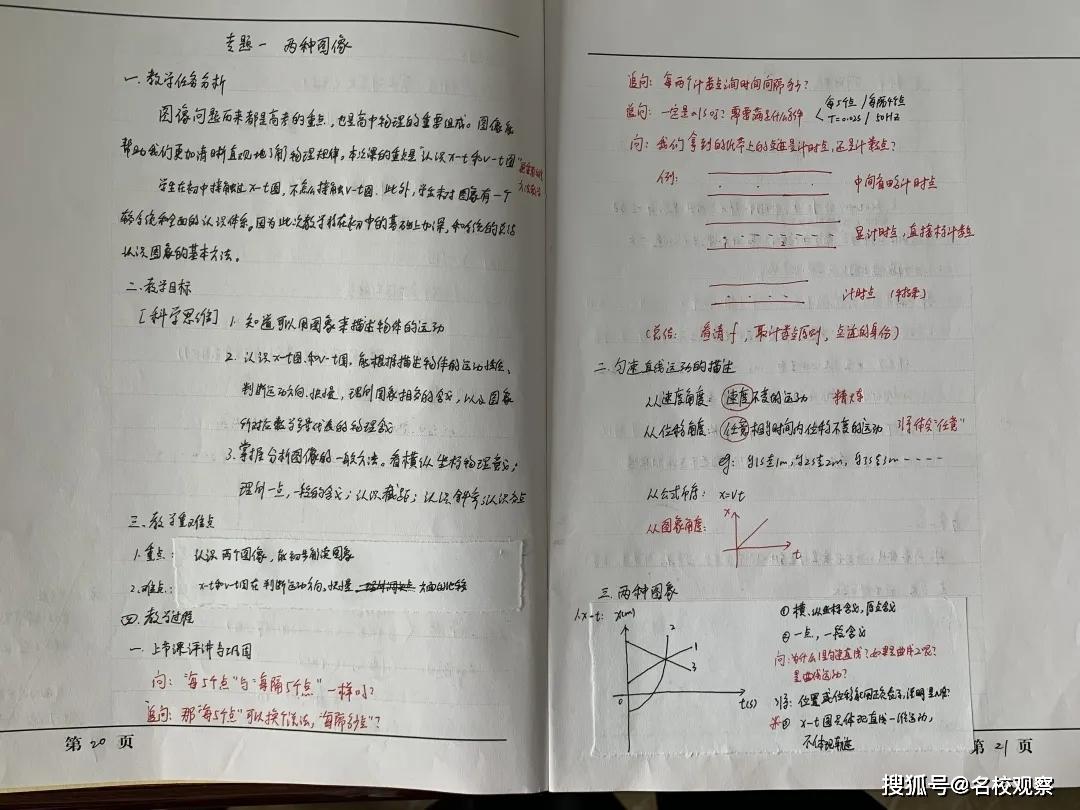 专题一 两种图像
一.教学任务分析
图像问题历来都是高考的重点,也是高中物理的重要组成。图像能
帮助我们更加清晰直观地了解物理规律。本次课的重点是"认识x-t和v-t图"
学生在初中接触过x-t图,不怎么接触v-t图.此外,学生未对图象有一个
较系统和全面的认识体系。因为此次教学将在初中的基础上加深,和系统的
认识图象的基本方法。
二.教学目标
[科学思维] 1.知道可以用图象来描述物体的运动
2.认识x-t图和v-t图,能根据描述物体的运动
判断运动方向、快慢,理解图象相交的含义,以及图象
所对应数学参量代表的物理含义
3.掌握分析图像的一般方法。看横纵坐标物理意义;
理解一点,一段的含义;认识截距;认识斜率;认识交点
三.教学重难点
1.重点: 认识两个图像,能初步解读图象
2.难点: x-t和v-t图在判断运动方向、快慢 方面的比较
四.教学过程
一.上节课评讲与巩固
问:"每5个点"与"每隔5个点"一样吗?
追问:那"每5个点"可以换个说法,"每隔多少点"?
第 20 页
追问:每两个计数点间时间间隔多少?
追问:一定是0.1s吗?需要满足什么条件
每5个点/每隔4个点
T=0.02s/50Hz
问:我们拿到的纸带上的点迹是计时点,还是计数点?
例:
中间省略计时点
是计时点,直接标计数点
计时点
(总结: 看清f,取计数点原则,点迹的身份)
二.匀速直线运动的描述
从速度角度:速度不变的运动
从位移角度:任意相等时间内位移不变的运动 引导体会"任意"
eg:每1s走1m,每2s走2m,每3s走3m-----
从公式角度: x=vt
从图象角度:
x
t
三.两种图象
1.x-t:
x(m)
2
1
3
0
t(s)
① 横、纵坐标含义,原点含义
② 一点,一段含义
问:为什么1是匀速直线?如果是曲线2呢?
是曲线运动?
x-t图只体现直线运动,
不体现轨迹
第 21 页
搜狐号@名校观察